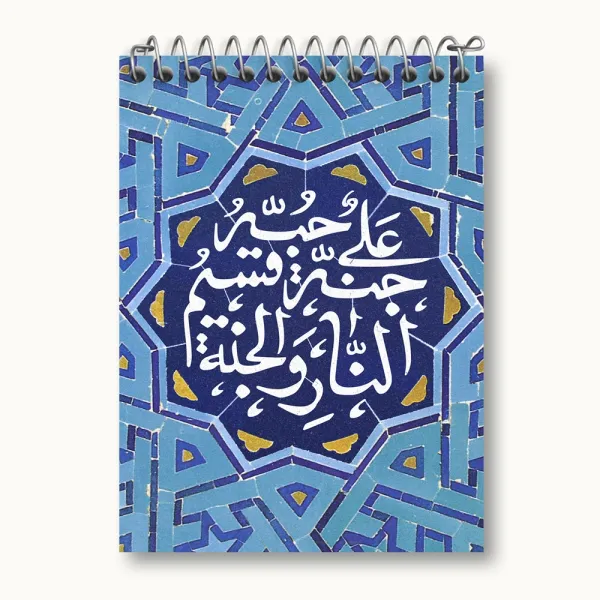 عَلیٌّ حُبُّهُ
جُنَّة قَسیمُ
النّارِ وَالجنّة